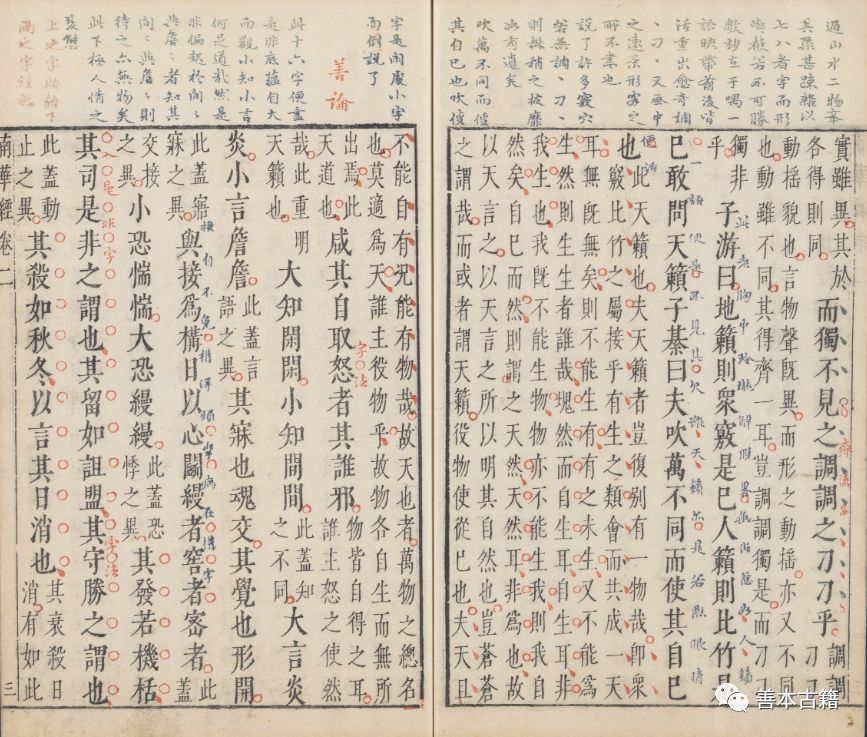 七八者字而形
語映帶前後皆
活重出愈奇調
、刁、又画中
之遠景形容之
所不盡也
説了許多竅穴
若無調、刁、
則林稍之披靡
必有遺矣
吹萬不同而使
其自已也吹使
實雖異其於
各得則同
而獨不見之調調之刁刁乎
調調
刁刁
動搖貌也言物聲既異而形之動搖亦又不同
也動雖不同其得齊一耳豈調調獨是而刁刁
獨非
乎
子游曰地籟則衆竅是已人籟則比竹是
已敢問天籟子綦曰夫吹萬不同而使其自已
也
此天籟也夫天籟者豈復别有一物哉卽衆
竅比竹之屬接乎有生之類會而共成一天
耳無既無矣則不能生有有之未生又不能爲
生然則生生者誰哉塊然而自生耳自生耳非
我生也我既不能生物物亦不能生我則我自
然矣自已而然則謂之天然天然耳非爲也故
以天言之以天言之所以明其自然也豈蒼蒼
之謂哉而或者謂天籟役物使從已也夫天且
而倒説了
善論
此十六字便盡
是非底蘊自大
而觀小知小言
何足道哉然是
待之亦無物矣
此下極人情之
變態
不能自有况能有物哉故天也者萬物之總名
也莫適爲天誰主役物乎故物各自生而無所
出焉此
天道也
咸其自取怒者其誰邪
物皆自得之耳
誰主怒之使然
字法
哉此重明
天籟也
大知閑閑小知間間
此蓋知
之不同
大言炎
炎小言詹詹
此蓋言
語之異
其寐也魂交其覺也形開
此蓋寤
寐之異
與接爲構日以心鬭縵者窖者密者
此
蓋
交接
之異
小恐惴惴大恐縵縵
此蓋恐
悸之異
其發若機栝
其司是非之謂也其留如詛盟其守勝之謂也
字法
此蓋動
止之異
其殺如秋冬以言其日消也
其衰殺日
消有如此
南華經卷二
三
善本古籍